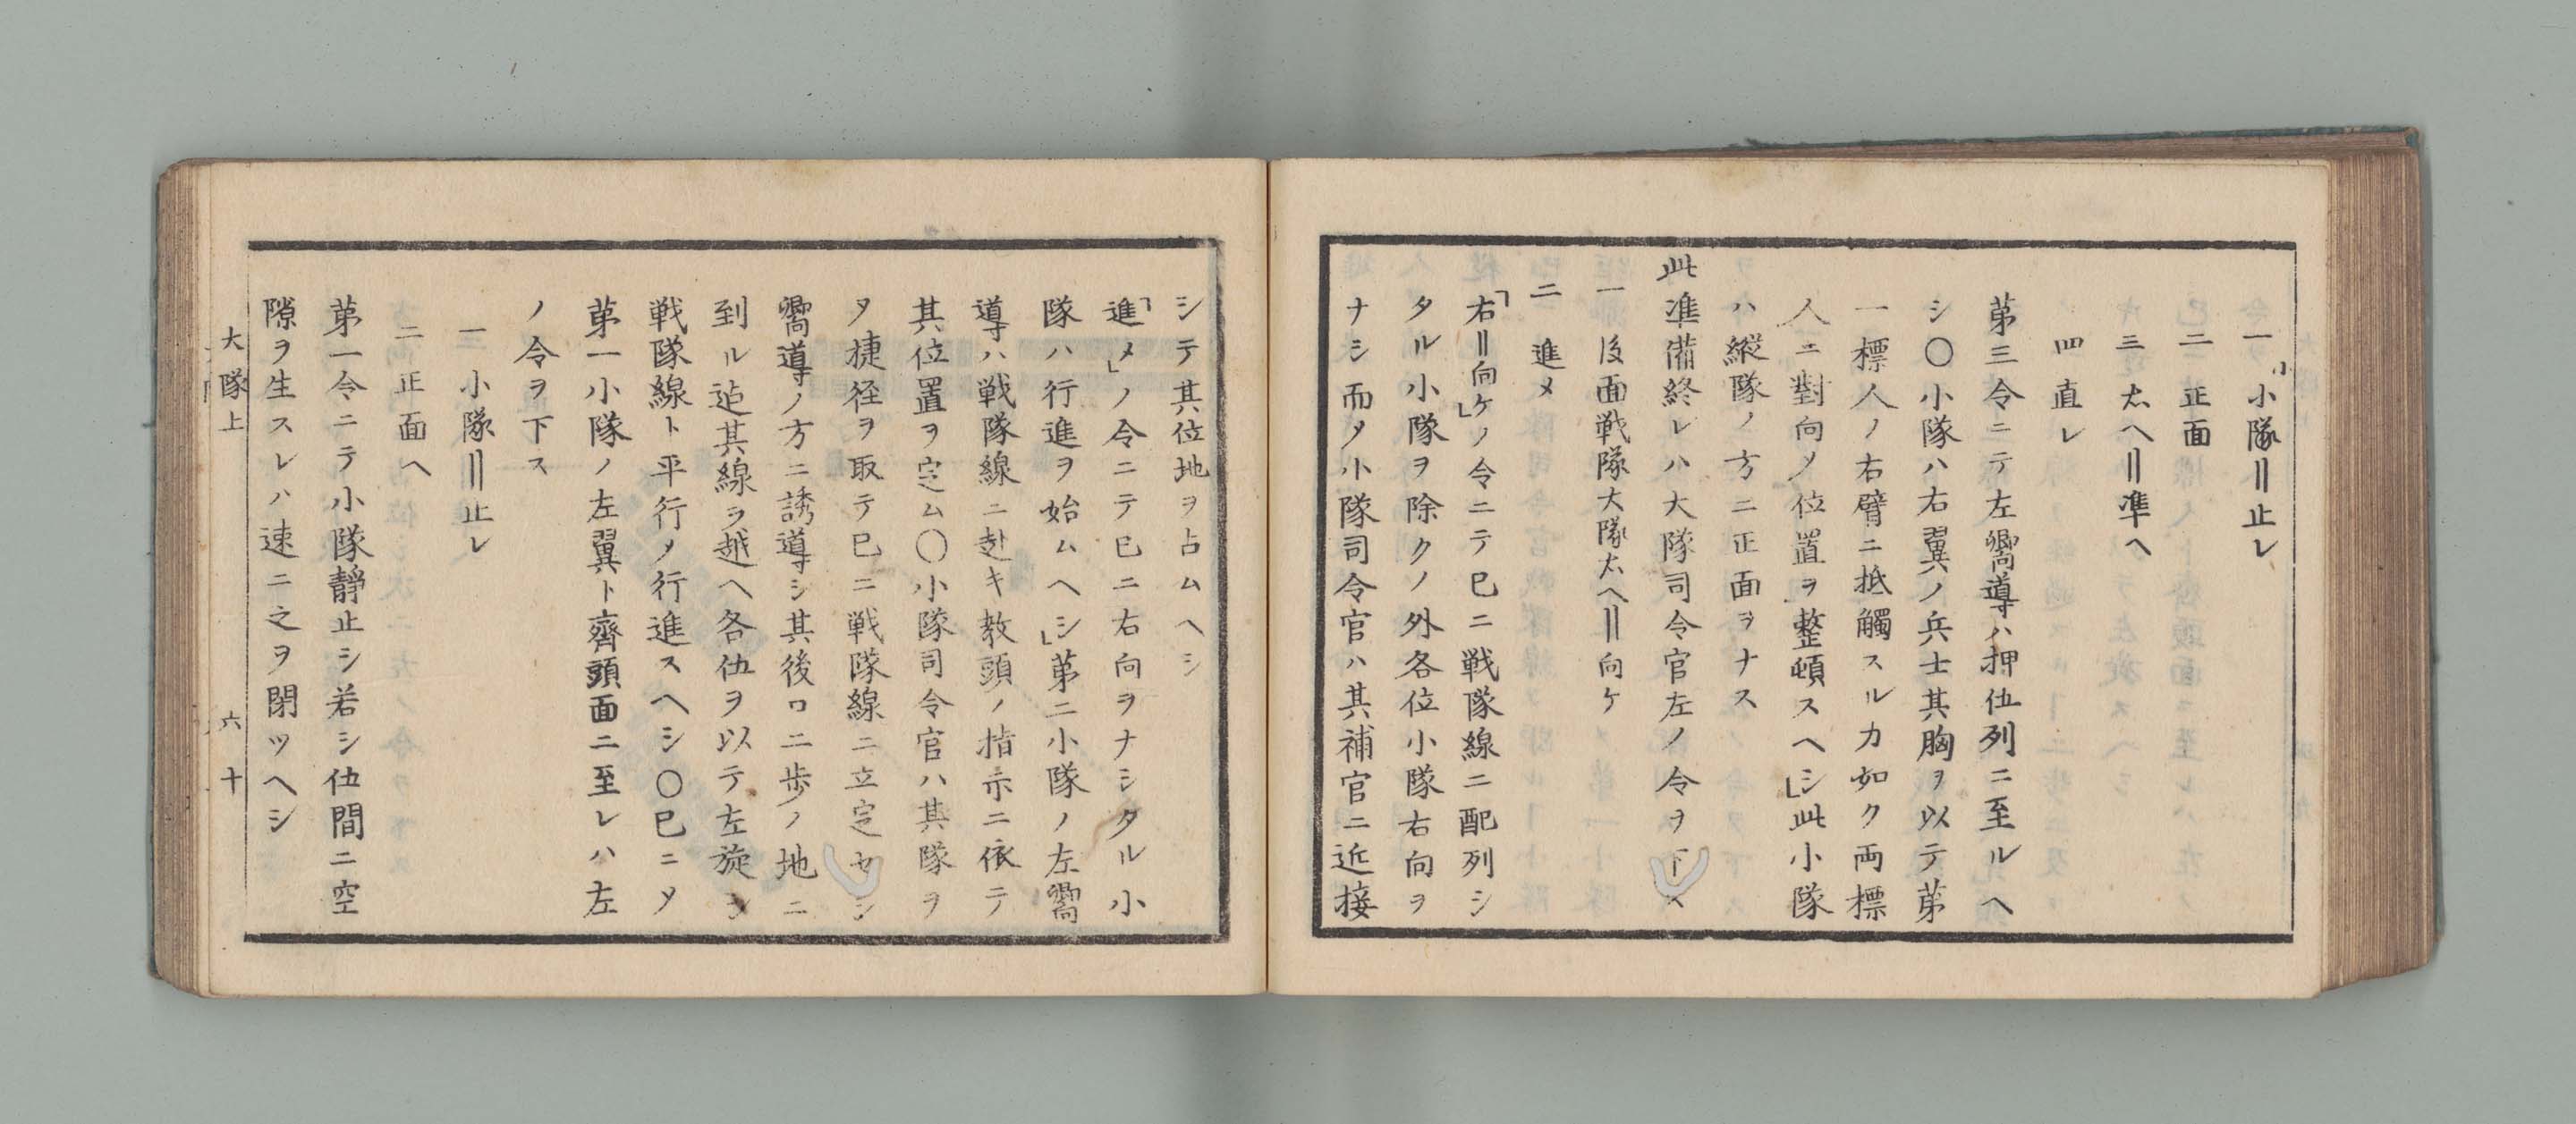 一 小隊‖止レ
二 正面
三 左ヘ‖準ヘ
四 直レ
第三令ニテ左嚮導ハ押伍列ニ至ルヘ
シ〇小隊ハ右翼ノ兵士其胸ヲ以テ第
一標人ノ右臂ニ抵觸スルカ如ク両標
人ニ對向メ位置ヲ整頓スヘシ」此小隊
ハ縦隊ノ方ニ正面ヲナス
此準備終レハ大隊司令官左ノ令ヲ下ス
一 後面戦隊大隊左ヘ‖向ケ
二 進メ
「右‖向ケ」ノ令ニテ已ニ戦隊線ニ配列シ
タル小隊ヲ除クノ外各位小隊右向ヲ
ナシ而メ小隊司令官ハ其補官ニ近接
シテ其位地ヲ占ムヘシ
「進メ」ノ令ニテ已ニ右向ヲナシタル小
隊ハ行進ヲ始ムヘシ」第二小隊ノ左嚮
導ハ戦隊線ニ赴キ教頭ノ指示ニ依テ
其位置ヲ定ム〇小隊司令官ハ其隊ヲ
ヲ捷径ヲ取テ已ニ戦隊線ニ立定セシ
嚮導ノ方ニ誘導シ其後ロ二歩ノ地ニ
到ル迠其線ヲ越ヘ各伍ヲ以テ左旋シ
戦隊線ト平行メ行進スヘシ〇已ニメ
第一小隊ノ左翼ト齊頭面ニ至レハ左
ノ令ヲ下ス
一 小隊‖止レ
二 正面ヘ
第一令ニテ小隊靜止シ若シ伍間ニ空
隙ヲ生スレハ速ニ之ヲ閉ツヘシ
大隊上 六十